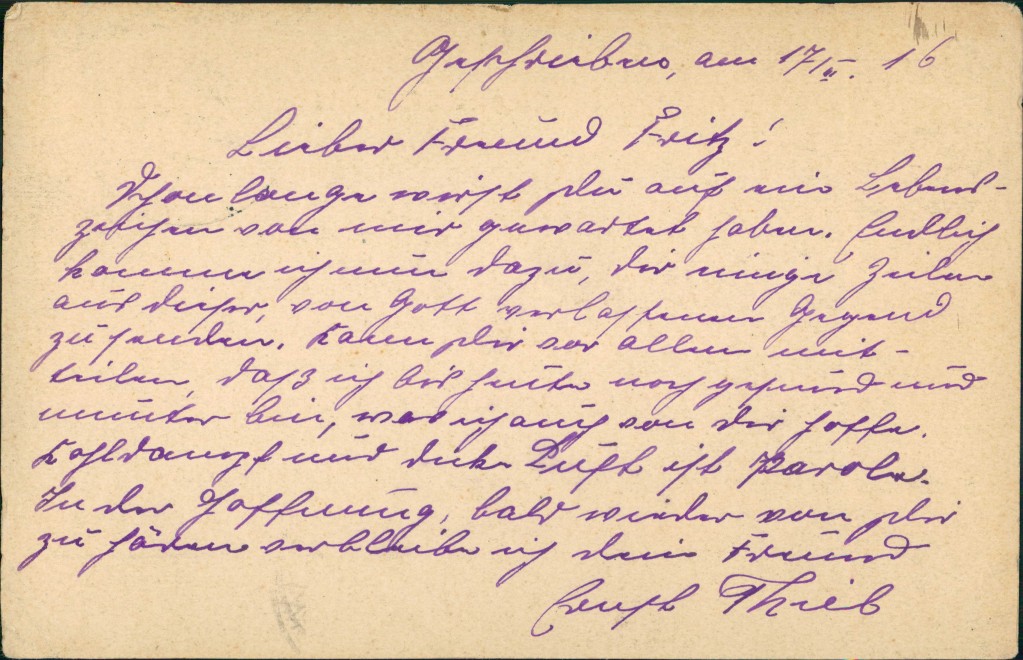 Geschrieben, am 17/II. 16
Lieber Freund Fritz!
Schon lange wirst Du auf ein Lebens-
zeichen von mir gewartet haben. Endlich
komme ich nun dazu, dir einige Zeilen
aus dieser, von Gott verlassenen Gegend
zu senden. Kann Dir vor allem mit-
teilen, daß ich bis heute noch gesund und
munter bin, was ich auch von dir hoffe.
Kohldampf und dicke Luft ist Parole.
In der Hoffnung, bald wieder von Dir
zu hören verbleibe ich dein Freund
Ernst